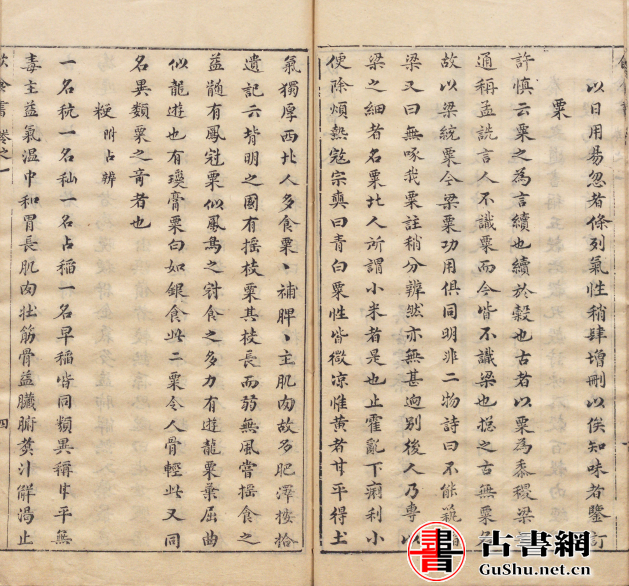 以日用易忽者條列氣性稍肆增刪以俟知味者鑒訂
粟
許慎云粟之為言續也續於穀也古者以粟為黍稷梁
通稱孟詵言人不識粟而今皆不識梁也揔之古無粟名
故以梁統粟今梁粟功用俱同明非二物詩曰不能蓺稻
梁又曰無啄我粟註稍分辨然亦無甚逈別後人乃專以
梁之細者名粟北人所謂小米者是也止霍亂下痢利小
便除煩熱冦宗奭曰青白粟性皆微凉惟黄者甘平得土
氣獨厚西北人多食粟丶補脾丶主肌肉故多肥澤按拾
遺記云背明之國有摇枝粟其枝長而弱無風嘗摇食之
益髓有鳳冠粟似鳳鳥之冠食之多力有遊龍粟葉屈曲
似龍遊也有瓊膏粟白如銀食此二粟令人骨輕此又同
名異類粟之竒者也
粳 附占辨
一名秔一名秈一名占稲一名早稲皆同類異稱甘平無
毒主益氣温中和胃長肌肉壮筋骨益臟腑煑汁解渴止
食書卷之一 四
書 古書網
GuShu.net.cn